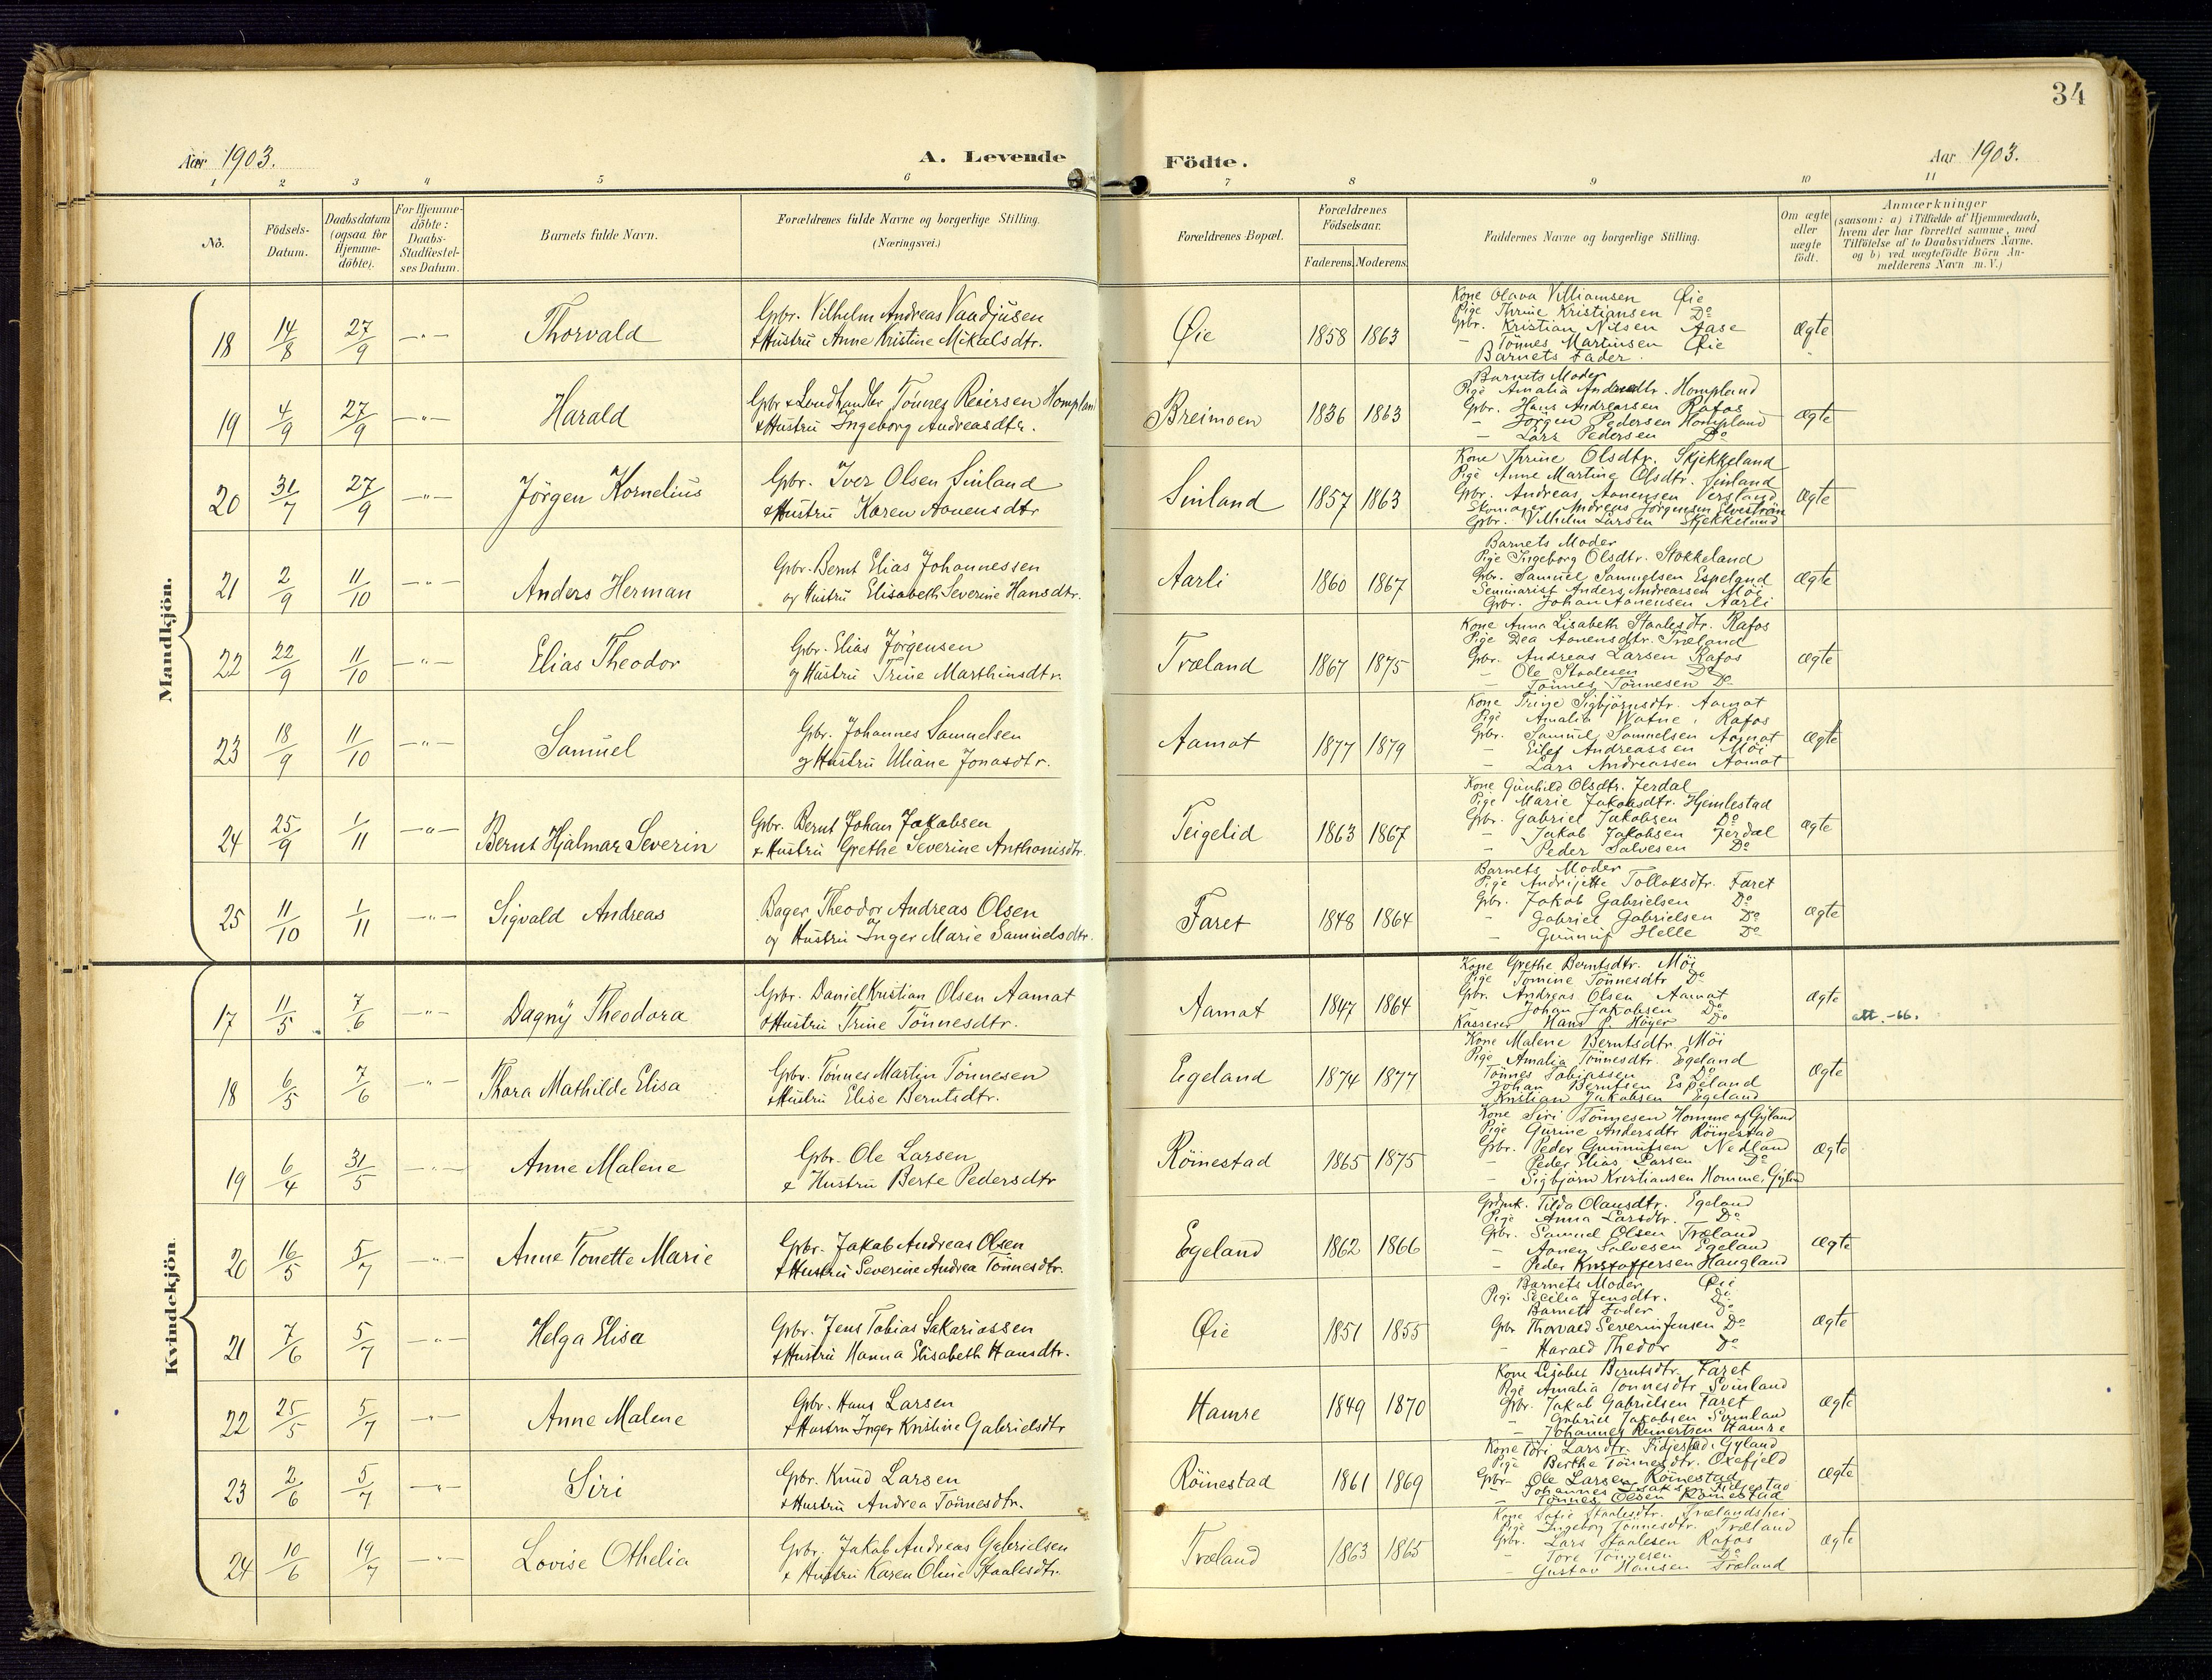 34
Aar 1903.
A. Levende Födte.
Aar 1903.
1 2 3 4 5 6 7 8 9 10 11
No.
Födsels-Datum.
Daabsdatum (ogsaa for Hjemme-döbte).
For Hjemme-döbte: Daabs-Stadfæstel-ses Datum.
Barnets fulde Navn.
Forældrenes fulde Navne og borgerlige Stilling.
(Næringsvei.)
Forældrenes Bopæl.
Forældrenes Födselsaar.
Faderens. Moderens.
Faddernes Navne og borgerlige Stilling.
Om ægte eller uægte födt.
Anmærkninger
(saasom: a) i Tilfælde af Hjemmedaab, hvem der har forrettet samme, med Tilföielse af to Daabsvidners Navne, og b) ved uægtefödte Börn An-melderens Navn m.V.)
Mandkjön.
18 14/8 27/9 —"— Thorvald
Gbr. Vilhelm Andreas Vaadjusen
& Hustru Anne Kristine Mikalsdtr.
Øie 1858 1863
Kone Olava Villiamsen Øie
Pige Thrine Kristiansen Do
Gbr. Kristian Nilsen Aase
— Tönnes Martinsen Øie
Barnets Fader.
Ægte
19 4/9 27/9 —"— Harald
Gbr & Landhandler Tönnes Reiersen Homplan
& Hustru Ingeborg Andreasdtr.
Breimoen 1836 1863
Barnets Moder
Pige Amalia Andreasdtr. Hompland
Gbr. Hans Andreassen Rafos
— Jörgen Pedersen Hompland
— Lars Pedersen Do
Ægte
20 31/7 27/9 —"— Jörgen Kornelius
Gbr. Iver Olsen Sinland
& Hustru Karen Aanensdtr
Sinland 1857 1863
Kone Thrine Olsdtr. Skjekkeland
Pige Anne Martine Olsdtr. Sinland
Gbr. Andreas Aanensen Versland
Skomager Andreas Jörgensen Elvestrøn
Gbr. Vilhelm Larsen Skjekkeland
Ægte
21 2/9 11/10 —"— Anders Herman
Gbr. Bernt Elias Johannessen
og Hustru Elisabeth Severine Hansdtr.
Aarli 1860 1867
Barnets Moder
Pige Ingeborg Olsdtr. Stokkeland
Gbr. Samuel Samuelsen Espeland
Seminarist Anders Andreassen Möi
Gbr. Johan Aanensen Aarli
Ægte
22 22/9 11/10 —"— Elias Theodor
Gbr. Elias Jörgensen
og Hustru Trine Marthinsdtr.
Træland 1867 1875
Kone Anna Lisabeth Staalesdtr. Rafos
Pige Dea Aanensdtr. Træland
Gbr. Andreas Larsen Rafos
— Ole Staalesen Do
— Tönnes Tönnesen Do
Ægte
23 18/9 11/10 —"— Samuel
Gbr. Johannes Samuelsen
og Hustru Uliane Jonasdtr.
Aamot 1877 1879
Kone Trine Sigbjörnsdtr. Aamot
Pige Amalia Watne, Rafos
Gbr. Samuel Samuelsen Aamot
— Eilef Andreassen Möi
— Lars Andreassen Aamot
Ægte
24 25/9 1/11 —"— Bernt Hjalmar Severin
Gbr. Bernt Johan Jakobsen
& Hustru Grethe Severine Anthonisdtr.
Teigelid 1863 1867
Kone Gunhild Olsdtr. Jerdal
Pige Marie Jakobsdtr. Hjemlestad
Gbr. Gabriel Jakobsen Do
— Jakob Jakobsen Jerdal
— Peder Salvesen Do
Ægte
25 11/10 1/11 —"— Sigvald Andreas
Bager Theodor Andreas Olsen
og Hustru Inger Marie Samuelsdtr.
Faret 1848 1864
Barnets Moder
Pige Andrijette Tollaksdtr. Faret
Gbr. Jakob Gabrielsen Do
— Gabriel Gabrielsen Do
— Gunnuf Helle Do
Ægte
Kvindekjön
17 11/5 7/6 —"— Dagny Theodora
Gbr. Daniel Kristian Olsen Aamat
& Hustru Trine Tönnesdtr.
Aamat 1847 1864
Kone Grethe Berntsdtr. Möi
Pige Tomine Tönnesdtr Do
Gbr. Andreas Olsen Aamat
Johan Jakobsen Do
Kasserer Hans P. Höyer Do
Ægte
att. -66.
18 6/5 7/6 —"— Thora Mathilde Elisa
Gbr. Tönnes Martin Tönnesen
& Hustru Elise Berntsdtr.
Egeland 1874 1877
Kone Malene Berntsdtr. Möi
Pige Amalia Tönnesdtr. Egeland
Tönnes Tobiassen Do
Johan Berntsen Espeland
Kristian Jakobsen Egeland
Ægte
19 6/4 31/5 —"— Anne Malene
Gbr. Ole Larsen
& Hustru Berte Pedersdtr
Röinestad 1865 1875
Kone Siri Tönnesen Homme af Gyland
Pige Gurine Andersdtr Röinestad
Gbr. Peder Gunnufsen Nedland
— Peder Elias Larsen Do
— Sigbjörn Kristiansen Homme, Gylan
Ægte
20 16/5 5/7 —"— Anne Tonette Marie
Gbr. Jakob Andreas Olsen
& Hustru Severine Andrea Tönnesdtr.
Egeland 1862 1866
Gbrmk. Tilda Olausdtr. Egeland
Pige Anna Larsdtr. Do
Gbr. Samuel Olsen Træland
— Aanen Salvesen Egeland
— Peder Kristoffersen Haugland
Ægte
21 7/6 5/7 —"— Helga Elisa
Gbr. Jens Tobias Sakariassen
& Hustru Hanna Elisabeth Hansdtr.
Øie 1851 1855
Barnets Moder Øie
Pige Secilia Jensdtr. Do
Barnets Fader Do
Gbr Thorvald Severin Jensen Do
— Harald Thedor Do
Ægte
22 25/5 5/7 —"— Anne Malene
Gbr. Hans Larsen
& Hustru Inger Kristine Gabrielsdtr
Hamre 1849 1870
Kone Lisabet Berntsdtr. Faret
Pige Amalia Tönnesdtr Svinland
Gbr. Jakob Gabrielsen Faret
— Gabriel Jakobsen Svinland
— Johannes Reinertsen Hamre
Ægte
23 2/6 5/7 —"— Siri
Gbr. Knud Larsen
& Hustru Andrea Tönnesdtr.
Röinestad 1861 1869
Kone Tori Larsdtr. Fidjestad, Gyland
Pige Berthe Tönnesdtr. Oxefjeld
Gbr— Ole Larsen Röinestad
— Johannes Isaksen Fidjestad
— Tönnes Olsen Röinestad
Ægte
24 10/6 19/7 —"— Lovise Othelia
Gbr. Jakob Andreas Gabrielsen
& Hustru Karen Oline Staalesdtr.
Træland 1863 1865
Kone Sofie Staalesdtr. Trælandshei
Pige Ingeborg Tönnesdtr. Træland
Gbr. Lars Staalesen Rafos
— Tore Tönnesen Do
— Gustav Hansen Træland
Ægte